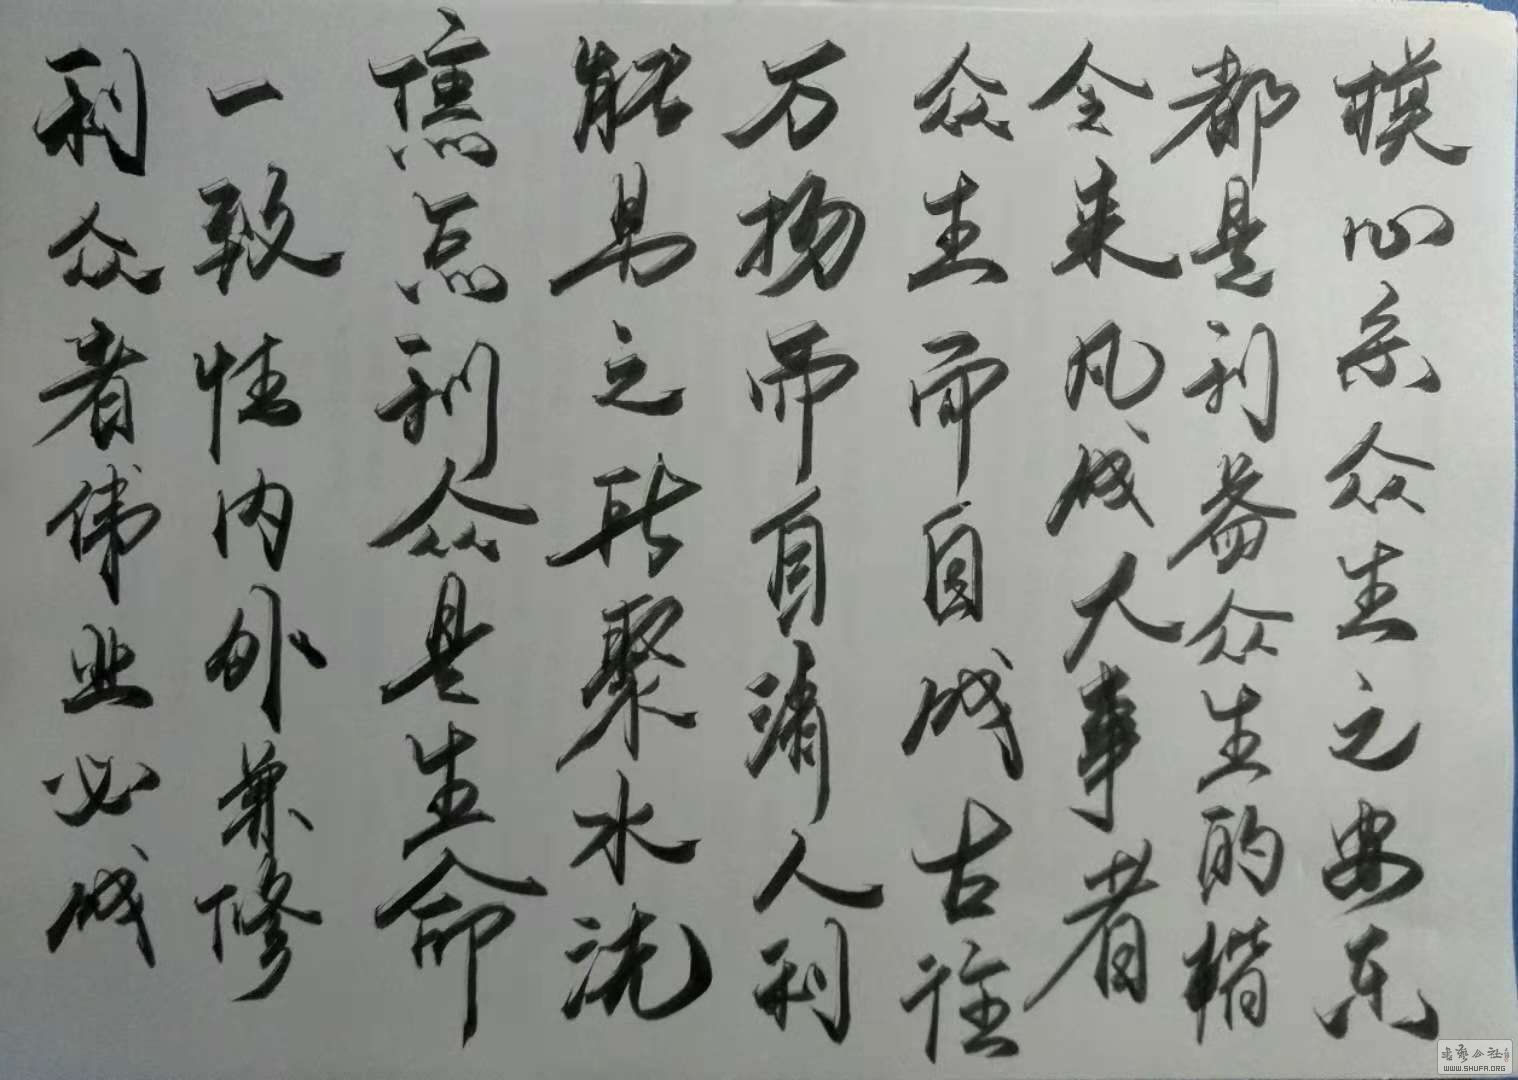 利众者伟业必成
一致性内外兼修
焦点利众是生命
能量之所聚水洗
万物而自清人利
众生而自成古往
今来凡成大事者
都是利益众生的楷
模心系众生之安乐
书艺公社
WWW.SHUFA.ORG